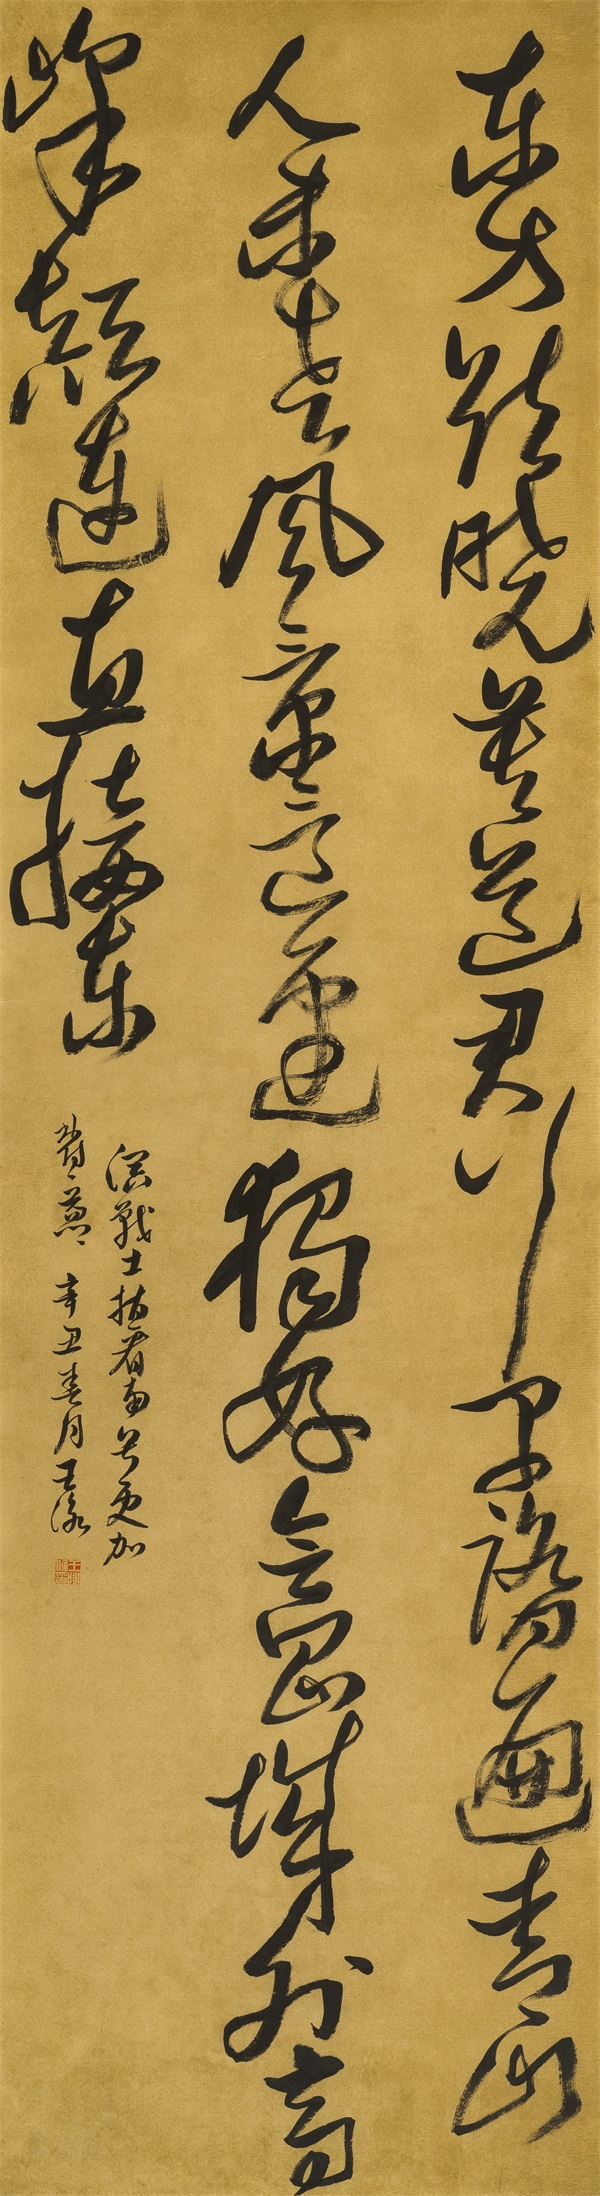 東方欲曉莫道君行早踏遍青山
人未老風景這邊獨好會昌城外高
峰顛連直接東
溟戰士指看南粤更加
郁々葱々 辛丑春月王泳